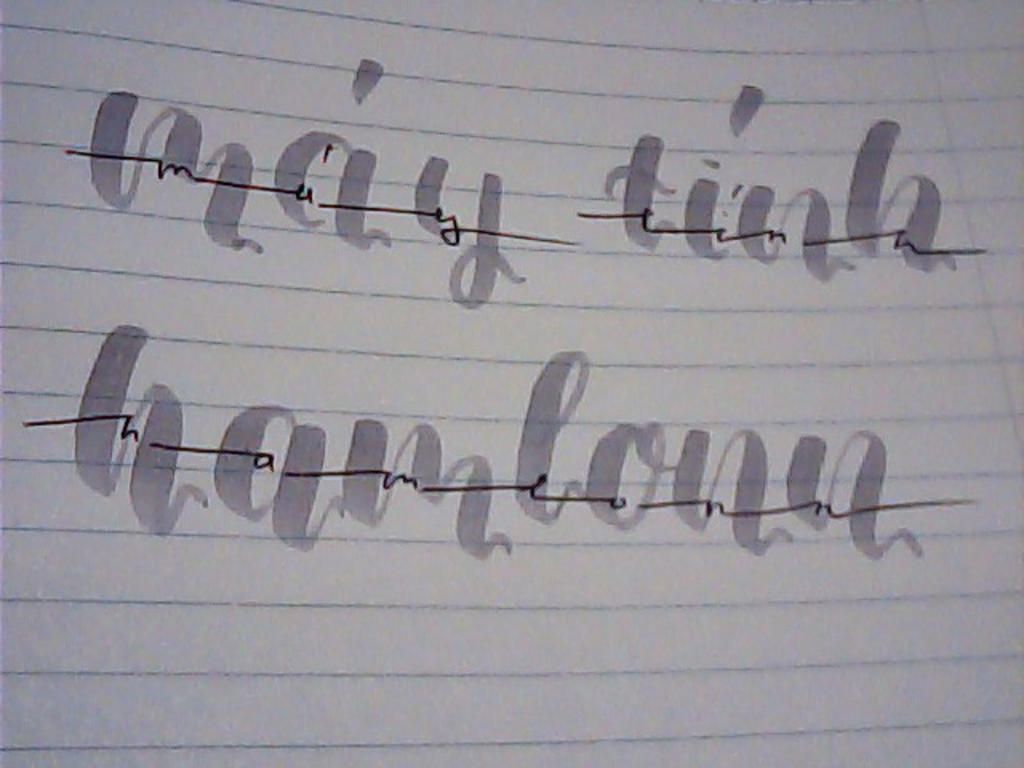 máy tính
hamlonn